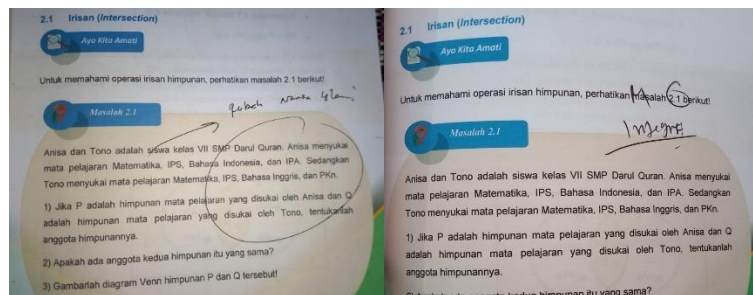 2.1 Irisan (Intersection)
Ayo Kita Amati
Untuk memahami operasi irisan himpunan, perhatikan masalah 2.1 berikut!
Masalah 2.1
Anisa dan Tono adalah siswa kelas VII SMP Darul Quran. Anisa menyukai
mata pelajaran Matematika, IPS, Bahasa Indonesia, dan IPA. Sedangkan
Tono menyukai mata pelajaran Matematika, IPS, Bahasa Inggris, dan PKn.
1) Jika P adalah himpunan mata pelajaran yang disukai oleh Anisa dan Q
adalah himpunan mata pelajaran yang disukai oleh Tono, tentukanlah
anggota himpunannya.
2) Apakah ada anggota kedua himpunan itu yang sama?
3) Gambarlah diagram Venn himpunan P dan Q tersebut!
2.1 Irisan (Intersection)
Ayo Kita Amati
Untuk memahami operasi irisan himpunan, perhatikan Masalah 2.1 berikut!
Masalah 2.1
Anisa dan Tono adalah siswa kelas VII SMP Darul Quran. Anisa menyukai
mata pelajaran Matematika, IPS, Bahasa Indonesia, dan IPA. Sedangkan
Tono menyukai mata pelajaran Matematika, IPS, Bahasa Inggris, dan PKn.
1) Jika P adalah himpunan mata pelajaran yang disukai oleh Anisa dan Q
adalah himpunan mata pelajaran yang disukai oleh Tono, tentukanlah
anggota himpunannya.
himpunan itu yang sama?